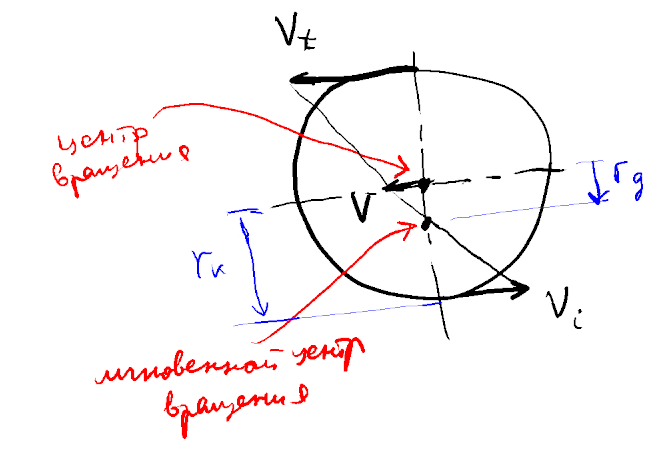 Vt
центр
вращения
V
rд
rк
Vi
мгновенной центр
вращения